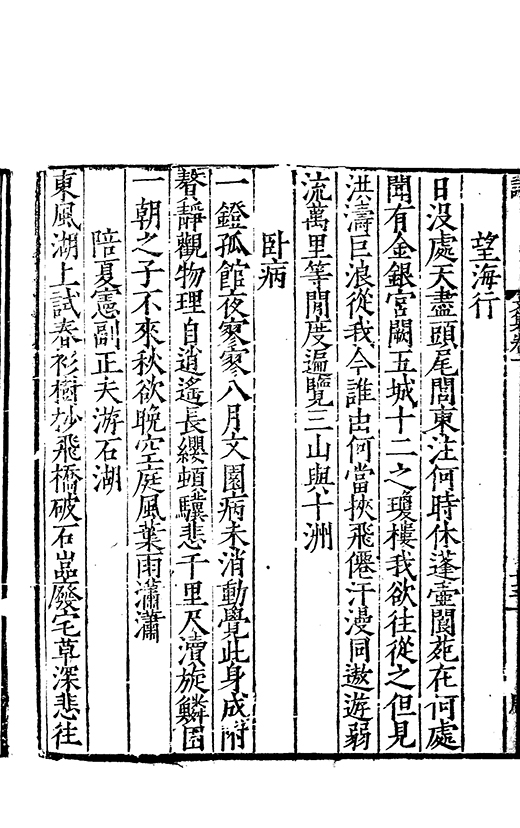 望海行
日没處天盡頭尾閭東注何時休蓬壷閬苑在何處
聞有金銀宫闕五城十二之瓊樓我欲往從之但見
洪濤巨浪從我今誰由何當挾飛僊汗漫同遨遊弱
流萬里等閒度遍覽三山與十洲
卧病
一鐙孤館夜寥寥八月文園病未消動覺此身成附
贅靜觀物理自逍遙長纓頓驥悲千里尺瀆旋鱗困
一朝之子不來秋欲晚空庭風葉雨瀟瀟
陪夏憲副正夫游石湖
東風湖上試春衫樹杪飛橋破石嵓廢宅草深悲往